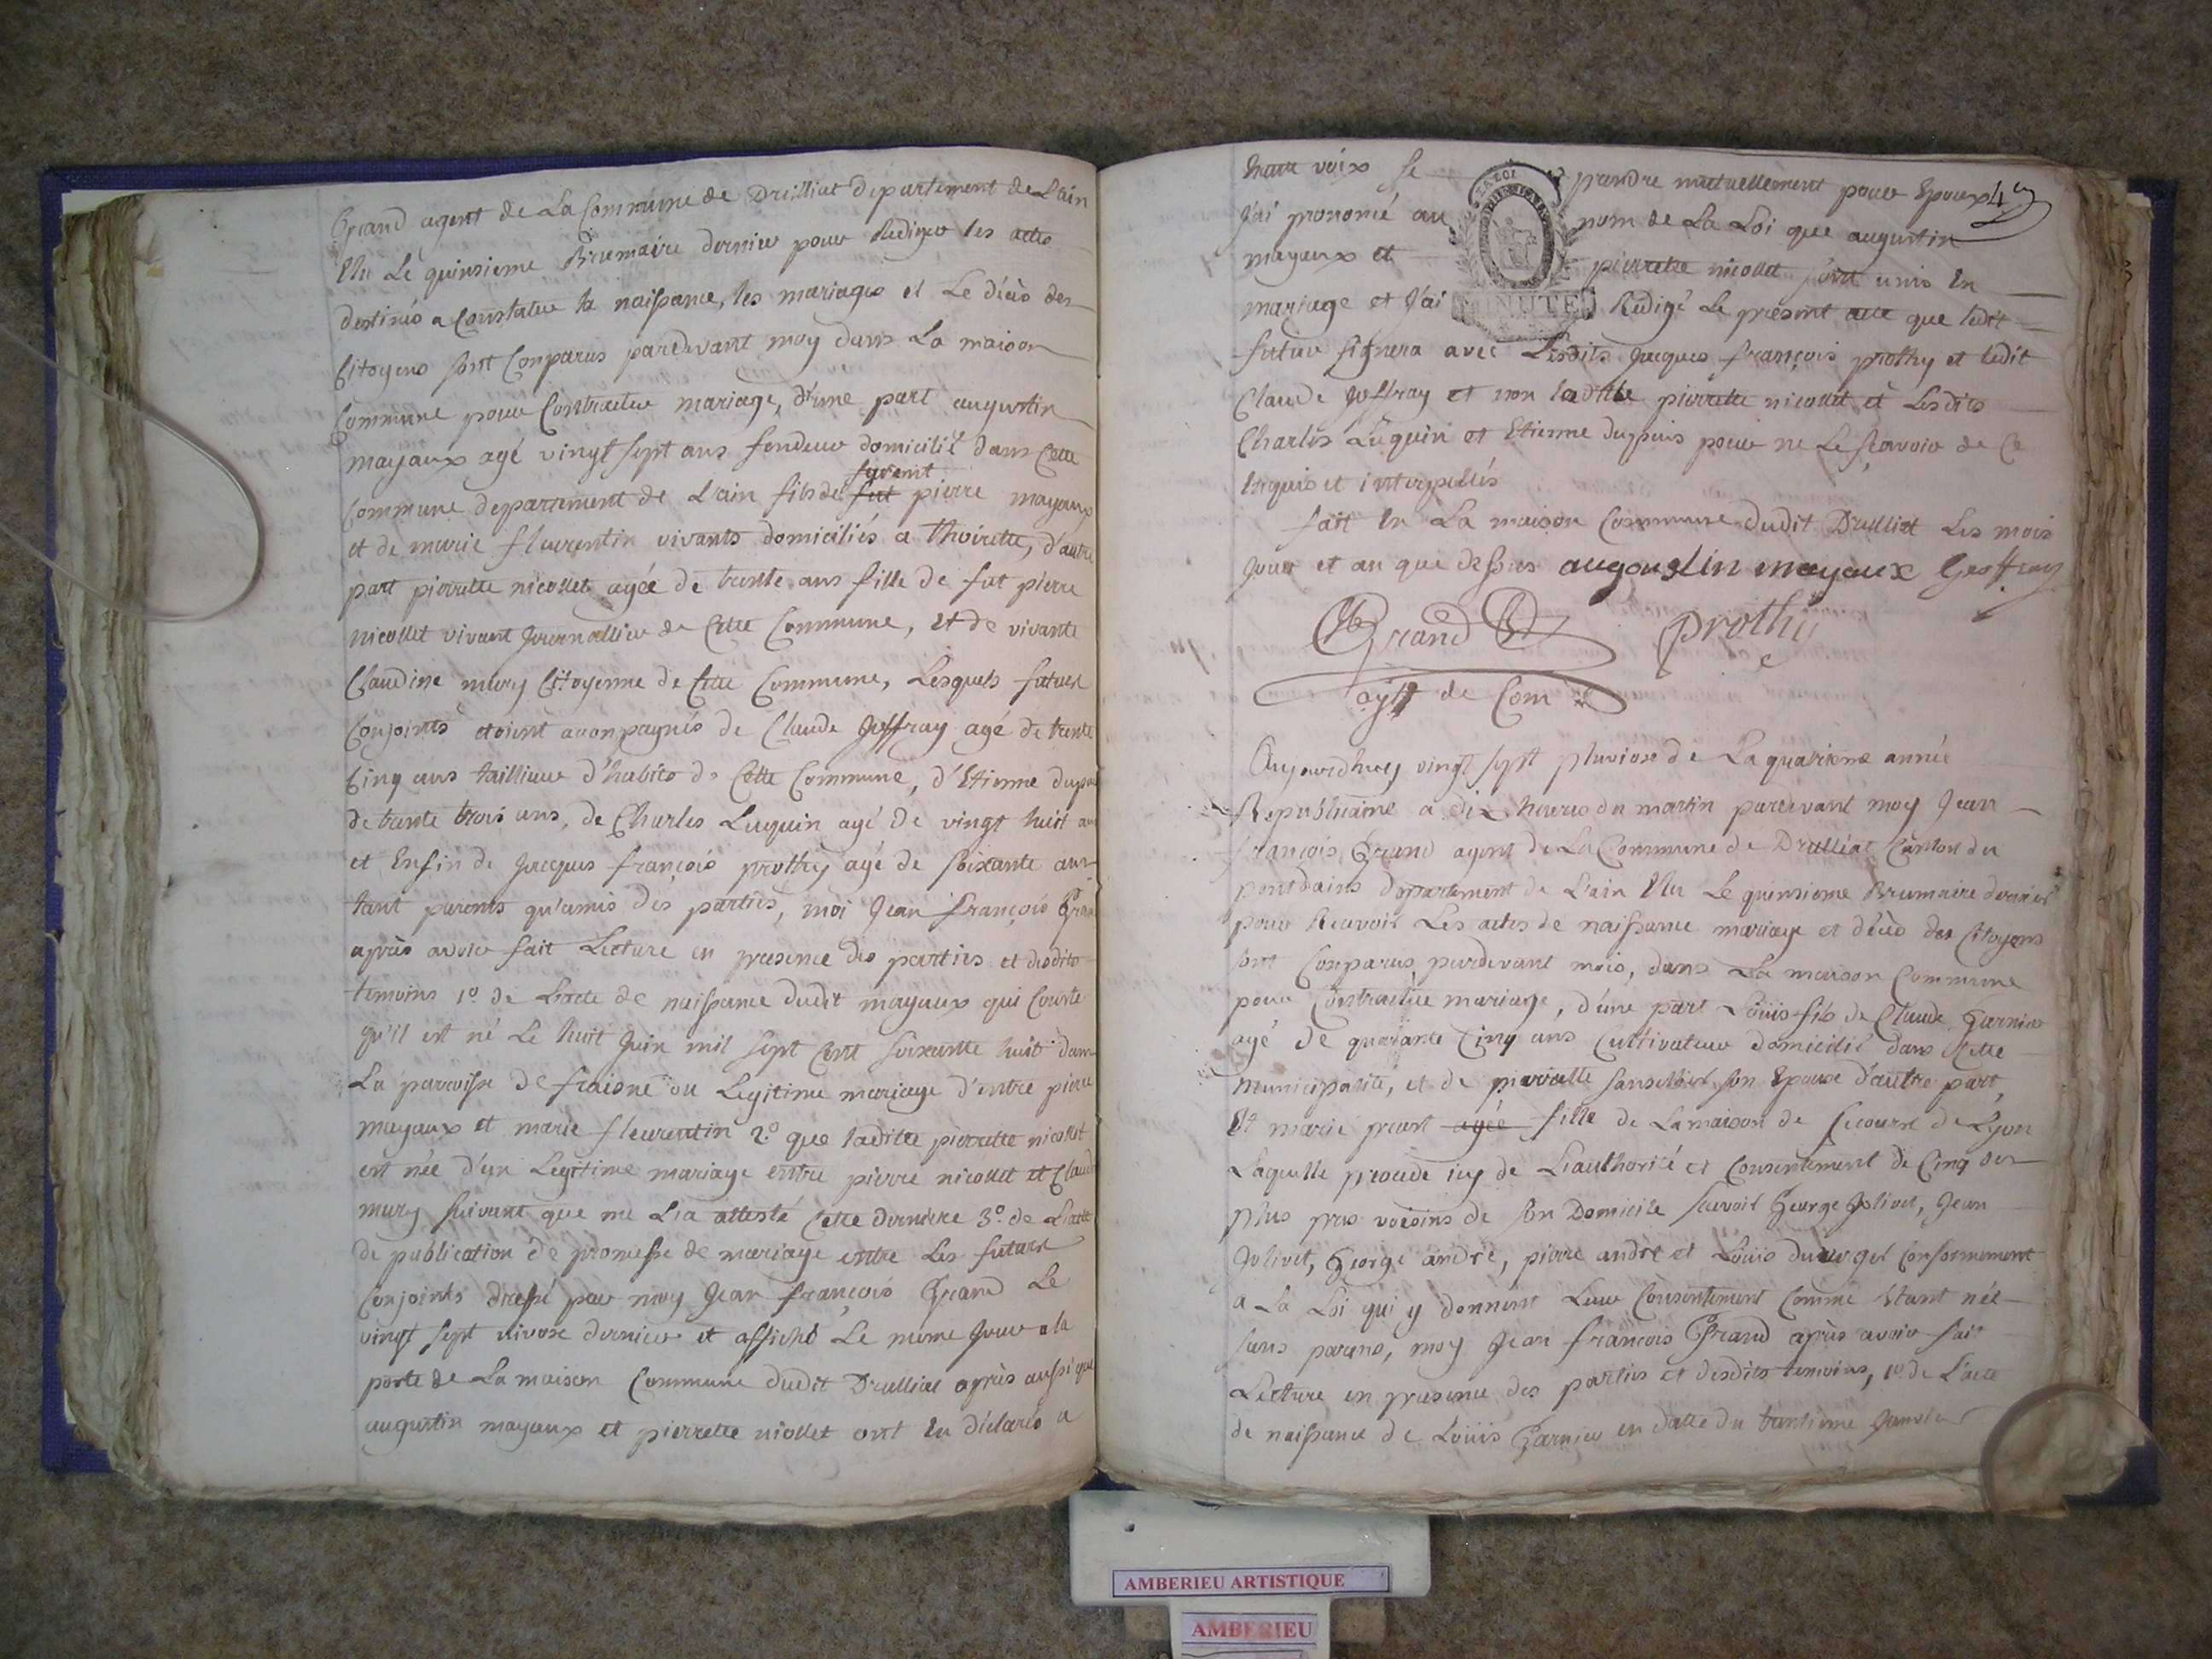 Grand agent de La Commune de Druilliat departement de L'ain
Elu Le quinsieme Brumaire dernier pour Rediger les actes
destinés a Constater la naissance, les mariages et Le décès des
Citoyens sont Conparus pardevant moy dans La maison
Commune pour Contracter mariage, d'une part augustin
mayaux agé vingt sept ans fondeur domicilié dans Cette
furent
Commune departement de L'ain fils de fut pierre mayaux
et de marie fleurentin vivants domiciliés a Thoirette, d'autre
part pierrette nicollet agée de trente ans fille de fut pierre
nicollet vivant Journallier de Cette Commune, Et de vivante
Claudine mury Citoyenne de Cette Commune, Lesquels futurs
Conjoints etoient aconpagnés de Claude Joffray agé de trente
Cinq ans taillieur d'habits de Cette Commune, d'Etienne dupuis
de trente trois ans, de Charles Luquin agé de vingt huit ans
et Enfin de Jacques françois prothy agé de soixante ans
tant parents qu'amis des parties, moi Jean françois Grand
après avoir fait Lecture en presence des parties et desdits
temoins 1º. de L'acte de naissance dudit mayaux qui Conste
qu'il est né Le huit Juin mil sept Cent soixante huit dans
La parroisse de fraisne du Legitime mariage d'entre pierre
mayaux et marie fleurentin 2º. que laditte pierrette nicollet
est née d'un Legitime mariage entre pierre nicollet et Claud
mury suivant que me L'a attesté Cette derniere 3º. de L'acte
de publication de promesse de mariage entre Les futurs
Conjoints dressé par moy Jean françois Grand Le
vingt sept nivose dernier et affiché Le même Jour a la
porte de La maison Commune dudit Druilliat après aussi que
augustin mayaux et pierrette niollet ont Eu déclaré a
haute voix se prendre mutuellement pour Epoux
J'ai prononcé au nom de La Loi que augustin
mayaux et pierrette nicollet sont unis En
mariage et J'ai Redigé Le present acte que ledit
futur signera avec Lesdits Jacques françois prothy et ledit
Claude Joffray et non laditte pierrette nicollet et Lesdits
Charles Luquin et Etienne dupuis pour ne Le sçavoir de Ce
Enquis et interpellés
fait En La maison Commune dudit Druilliat Les mois
Jour et an que dessus augoustin mayaux Geoffray
Grand prothy
agt de Com
Aujourdhuy vingt sept pluviose de La quatrieme année
Republicaine a dix heures du martin pardevant moy Jean
françois Grand agent de La Commune de Druilliat Canton du
pontdains departement de L'ain Elu Le quinsieme Brumaire dernier
pour Recevoir Les actes de naissance mariage et décès des Citoyens
sont Conparus pardevant mois, dans La maison Commune
pour Contracter mariage, d'une part Louis fils de Claude Garnier
agé de quarante Cinq ans Cultivateur domicilié dans Cette
municipalité, et de pierrette son Epouse d'autre part,
Et marie agée fille de La maison de secours de Lyon
Laquelle procede icy de L'authorité et Consentement de Cinq des
plus pres voisins de son Domicile sçavoir George Jolivet, Jean
Jolivet, George andré, pierre andré et Louis duverger Conformement
a La Loi qui y donnent Leur Consentement Comme Etant née
sans parans, moy Jean françois Grand après avoir fait
Lecture en presence des parties et desdits temoins, 1º. de L'acte
de naissance de Louis Garnier en datte du trentieme Janvier
LA LOI
MINUTE
AMBERIEU ARTISTIQUE
AMBERIEU